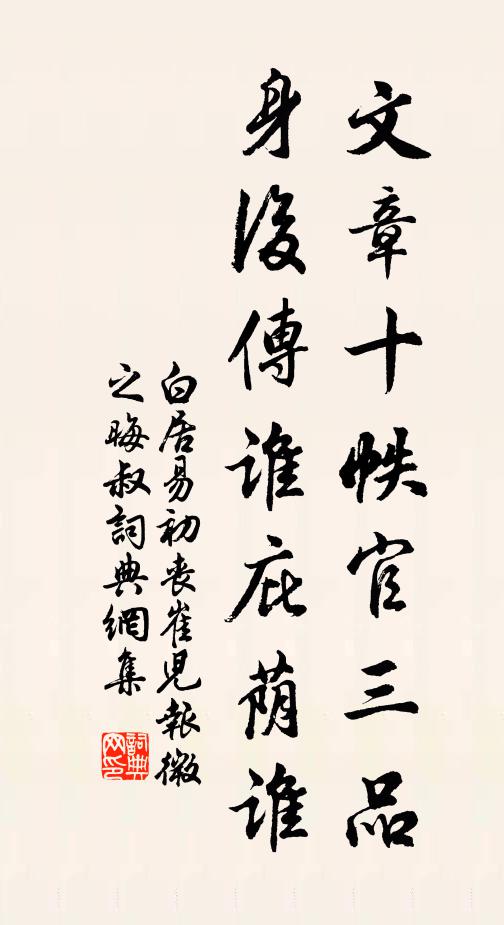 文章十帙官三品
身後傳誰庇蔭誰
白居易初喪崔兒報微
之晦叔詞典網集
詞典
网印